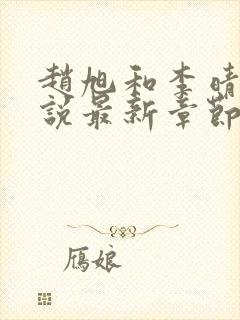 趙旭和李晴
說最新章節
鴈娘